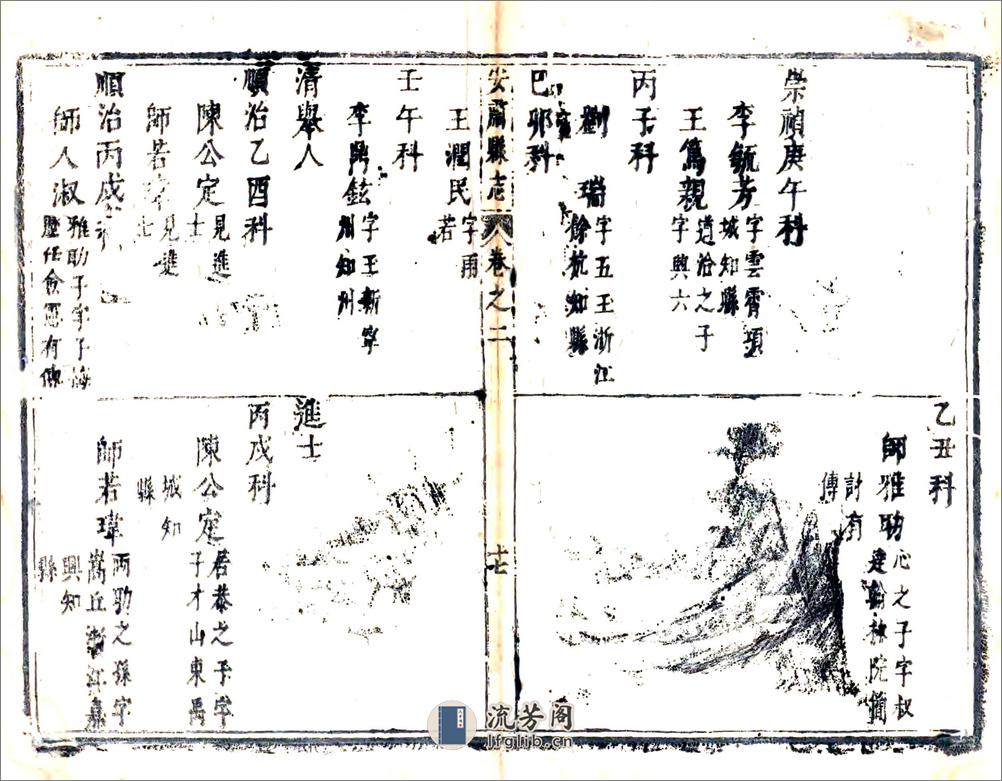 崇禎庚午科
李毓芳 字雲霄項城知縣
王篤親 道洽之子字興六
丙子科
劉瑞 字五玉浙江餘杭知縣
己卯科
乙丑科
師雅助 心之子字叔
建翰林院簡討有傳
安肅縣志
卷之二
十七
王潤民 字雨若
壬午科
李鼎鉉 字玉新寧州知州
清舉人
順治乙酉科
陳公定 見進士
師若瑋 見進士
順治丙戌科
師人淑 雅助子字子
歷任僉憲有傳
進士
丙戌科
陳公定 子字子才山東禹城知縣
師若瑋 丙助之孫字嵩丘浙江嘉興知縣
流芳阁
lfglib.cn